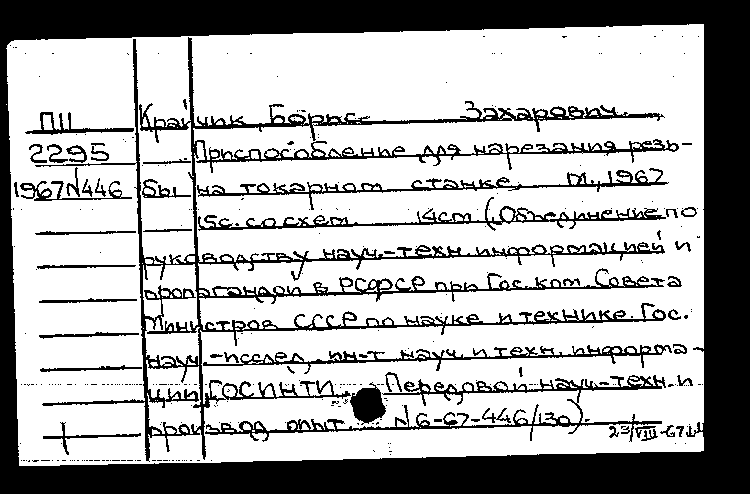 ПII Крайчик, Борис Захарович.
2295 Приспособление для нарезания резь-
1967№446 бы на токарном станке. М., 1967
15с. со схем. 14см (Объединение по
руководству науч.-техн. информацией и
пропагандой в РСФСР при Гос. ком. Совета
Министров СССР по науке и технике. Гос.
науч.-исслед. ин-т науч. и техн. информа-
ции ГОСИНТИ. Передовой науч.-техн. и
производ. опыт. №6-67-446/130).
23/VIII-67